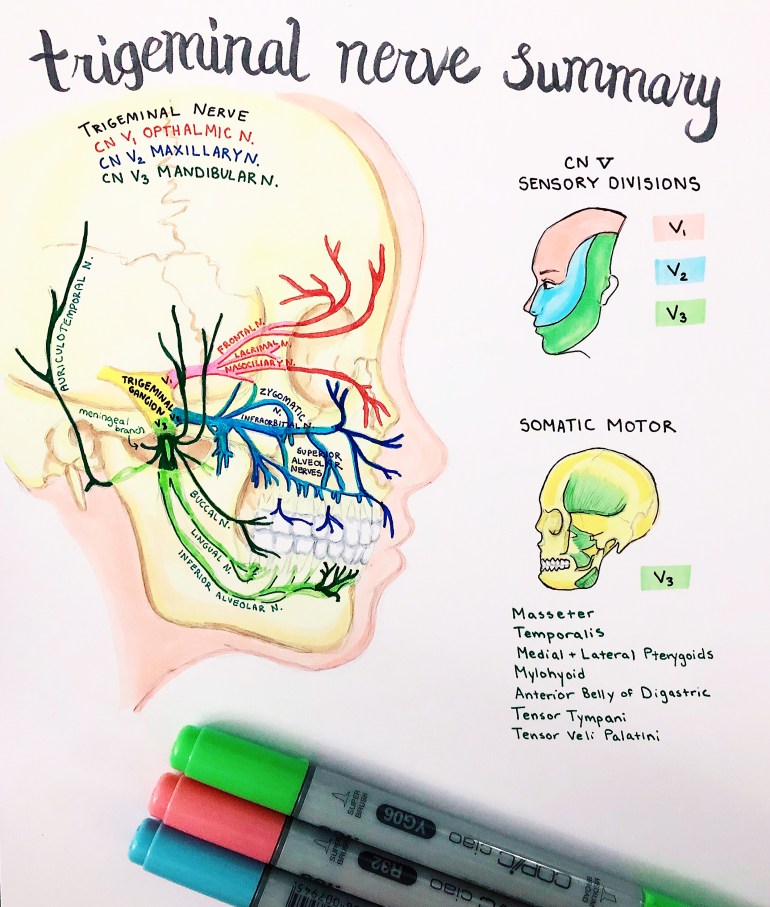 trigeminal nerve summary
TRIGEMINAL NERVE
CN V1 OPTHALMIC N.
CN V2 MAXILLARY N.
CN V3 MANDIBULAR N.
CN V
SENSORY DIVISIONS
V1
V2
V3
AURICULOTEMPORAL N.
FRONTAL N.
LACRIMAL N.
NASOCILIARY N.
V1
TRIGEMINAL
GANGLION
V2
V3
ZYGOMATIC
N.
INFRAORBITAL N.
meningeal
branch
SUPERIOR
ALVEOLAR
NERVES
BUCCAL N.
LINGUAL N.
INFERIOR ALVEOLAR N.
SOMATIC MOTOR
V3
Masseter
Temporalis
Medial + Lateral Pterygoids
Mylohyoid
Anterior Belly of Digastric
Tensor Tympani
Tensor Veli Palatini
SUPER
BRUSH
YG06
COPIC ciao
MEDIUM
BROAD
SUPER
BRUSH
R32
COPIC ciao